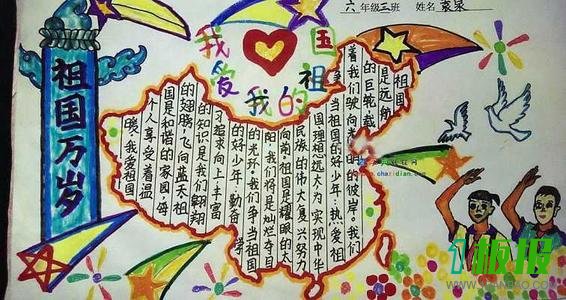 六年级三班 姓名 袁泉
我爱我的祖国
祖国万岁
祖国
是远航
的巨轮载
着我们驶向光明的彼岸。我们
当祖国的好少年。热爱祖
国理想远大为实现中华
民族的伟大复兴努力
向前。祖国是耀眼的太
阳我们将是灿烂夺目
的光环。我们争当祖国
的好少年。勤奋学
习追求向上丰富
的知识是我们翱翔
的翅膀,飞向蓝天。祖
国是和谐的家园。每
个人享受着温
暖。我爱祖国
chazidian.com
1板报